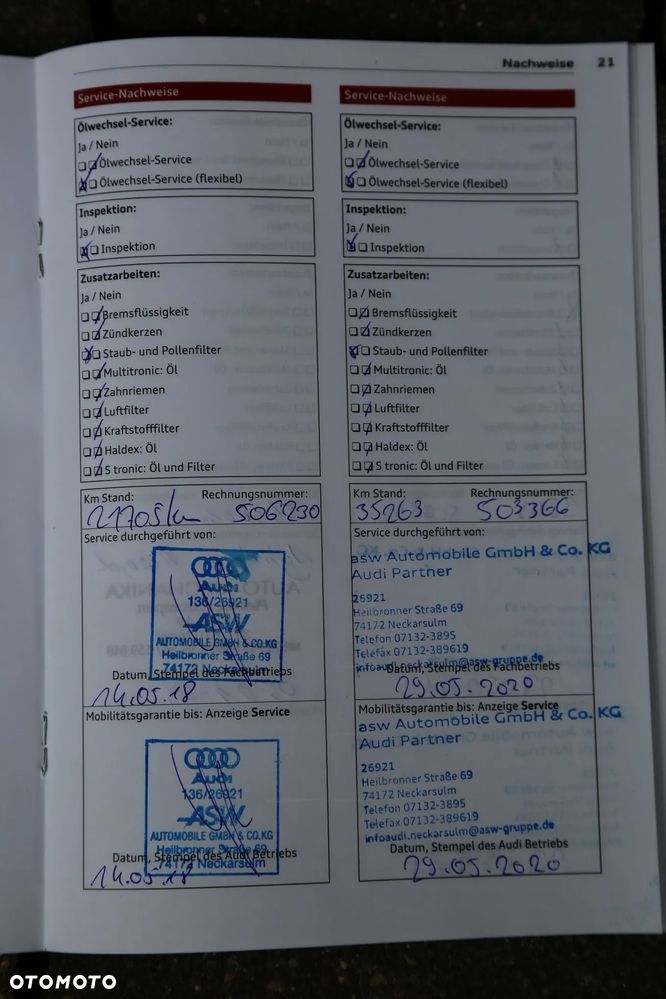 Nachweise 21
Service-Nachweise
Ölwechsel-Service:
Ja / Nein
Ölwechsel-Service
Ölwechsel-Service (flexibel)
Inspektion:
Ja / Nein
Inspektion
Zusatzarbeiten:
Ja / Nein
Bremsflüssigkeit
Zündkerzen
Staub- und Pollenfilter
Multitronic: Öl
Zahnriemen
Luftfilter
Kraftstofffilter
Haldex: Öl
S tronic: Öl und Filter
Km Stand: Rechnungsnummer:
21705 km 506230
Service durchgeführt von:
Audi
136/26921
ASW
AUTOMOBILE GMBH & CO.KG
Heilbronner Straße 69
74172 Neckarsulm
Datum, Stempel des Fachbetriebs
14.05.18
Mobilitätsgarantie bis: Anzeige Service
Audi
136/26921
ASW
AUTOMOBILE GMBH & CO.KG
Heilbronner Straße 69
Datum, Stempel des Audi Betriebs
74172 Neckarsulm
14.05.18
Service-Nachweise
Ölwechsel-Service:
Ja / Nein
Ölwechsel-Service
Ölwechsel-Service (flexibel)
Inspektion:
Ja / Nein
Inspektion
Zusatzarbeiten:
Ja / Nein
Bremsflüssigkeit
Zündkerzen
Staub- und Pollenfilter
Multitronic: Öl
Zahnriemen
Luftfilter
Kraftstofffilter
Haldex: Öl
S tronic: Öl und Filter
Km Stand: Rechnungsnummer:
35263 503366
Service durchgeführt von:
asw Automobile GmbH & Co. KG
Audi Partner
26921
Heilbronner Straße 69
74172 Neckarsulm
Telefon 07132-3895
Telefax 07132-389619
infoaudi.neckarsulm@asw-gruppe.de
Datum, Stempel des Fachbetriebs
29.05.2020
Mobilitätsgarantie bis: Anzeige Service
asw Automobile GmbH & Co. KG
Audi Partner
26921
Heilbronner Straße 69
74172 Neckarsulm
Telefon 07132-3895
Telefax 07132-389619
infoaudi.neckarsulm@asw-gruppe.de
Datum, Stempel des Audi Betriebs
29.05.2020
OTOMOTO